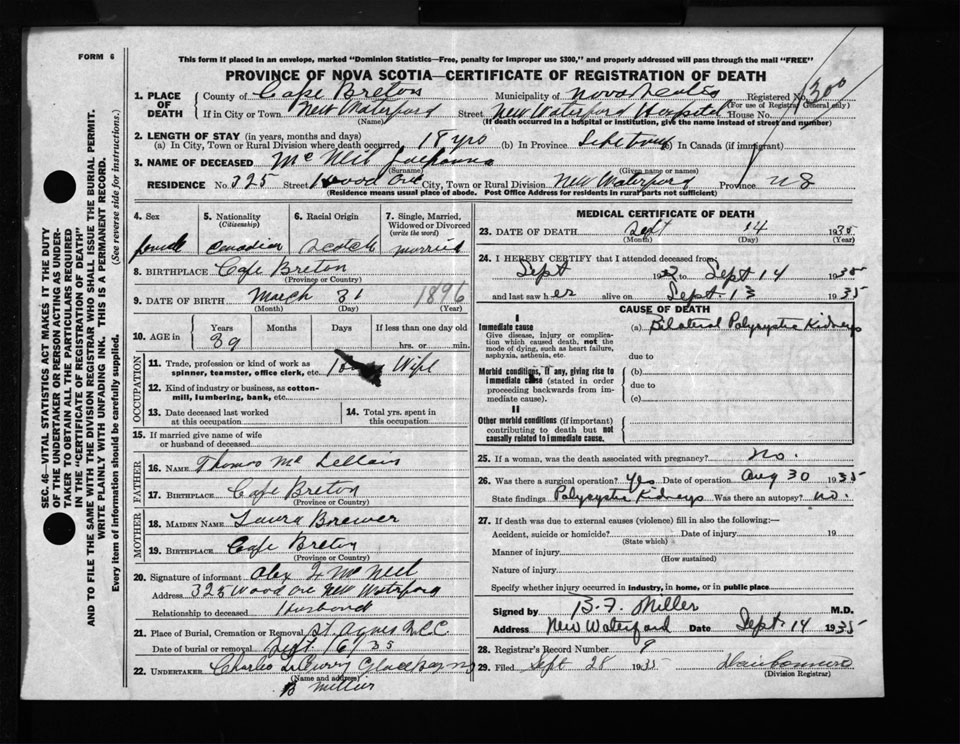 FORM 6
This form if placed in an envelope, marked "Dominion Statistics—Free, penalty for improper use $300," and properly addressed will pass through the mail "FREE"
PROVINCE OF NOVA SCOTIA—CERTIFICATE OF REGISTRATION OF DEATH
SEC. 46—VITAL STATISTICS ACT MAKES IT THE DUTY
OF THE UNDERTAKER OR PERSON ACTING AS UNDER-
TAKER TO OBTAIN ALL THE PARTICULARS REQUIRED
IN THE "CERTIFICATE OF REGISTRATION OF DEATH"
AND TO FILE THE SAME WITH THE DIVISION REGISTRAR WHO SHALL ISSUE THE BURIAL PERMIT.
WRITE PLAINLY WITH UNFADING INK. THIS IS A PERMANENT RECORD.
Every item of information should be carefully supplied. (See reverse side for instructions.)
1. PLACE OF DEATH
County of Cape Breton Municipality of Nova Scotia Registered No. 1300
(For use of Registrar General only)
If in City or Town New Waterford Street New Waterford Hospital House No.
(Name) (If death occurred in a hospital or institution, give the name instead of street and number)
2. LENGTH OF STAY (in years, months and days)
(a) In City, Town or Rural Division where death occurred 18 yrs (b) In Province Lifetime In Canada (if immigrant)
3. NAME OF DECEASED McNeil
(Surname) (Given name or names)
RESIDENCE No. 325 Street Wood Ave City, Town or Rural Division New Waterford Province N S
(Residence means usual place of abode. Post Office Address for residents in rural parts not sufficient)
4. Sex
female
5. Nationality
(Citizenship)
Canadian
6. Racial Origin
Scotch
7. Single, Married, Widowed or Divorced
(write the word)
married
8. BIRTHPLACE Cape Breton
(Province or Country)
9. DATE OF BIRTH March 31 1896
(Month) (Day) (Year)
10. AGE in Years Months Days If less than one day old
39 hrs. or min.
OCCUPATION
11. Trade, profession or kind of work as
spinner, teamster, office clerk, etc. Wife
12. Kind of industry or business, as cotton-
mill, lumbering, bank, etc.
13. Date deceased last worked
at this occupation
14. Total yrs. spent in
this occupation
15. If married give name of wife
or husband of deceased
FATHER
16. NAME Thomas Mc
17. BIRTHPLACE Cape Breton
(Province or Country)
MOTHER
18. MAIDEN NAME Laura Brewer
19. BIRTHPLACE Cape Breton
(Province or Country)
20. Signature of informant Alex J McNeil
Address 325 Wood Ave New Waterford
Relationship to deceased Husband
21. Place of Burial, Cremation or Removal St. Agnes R.C.C.
Date of burial or removal Sept 16/35
22. UNDERTAKER Charles Glace Bay NS
(Name and address)
MEDICAL CERTIFICATE OF DEATH
23. DATE OF DEATH Sept 14 1935
(Month) (Day) (Year)
24. I HEREBY CERTIFY that I attended deceased from
Sept 19 to Sept 14 1935
and last saw her alive on Sept. 13 1935
CAUSE OF DEATH
I
Immediate cause
Give disease, injury or complica-
tion which caused death, not the
mode of dying, such as heart failure,
asphyxia, asthenia, etc.
(a) Bilateral Polycystic Kidneys
due to
Morbid conditions, if any, giving rise to
immediate cause (stated in order
proceeding backwards from im-
mediate cause).
(b)
due to
(c)
II
Other morbid conditions (if important)
contributing to death but not
causally related to immediate cause.
25. If a woman, was the death associated with pregnancy? no.
26. Was there a surgical operation? Yes Date of operation Aug 30 1935
State findings Polycystic Kidneys Was there an autopsy? no.
27. If death was due to external causes (violence) fill in also the following:—
Accident, suicide or homicide? Date of injury 19
(State which)
Manner of injury
(How sustained)
Nature of injury
Specify whether injury occurred in industry, in home, or in public place
Signed by B. F. Miller M.D.
Address New Waterford Date Sept. 14 1935
28. Registrar's Record Number 9
29. Filed Sept 28 1935
(Division Registrar)